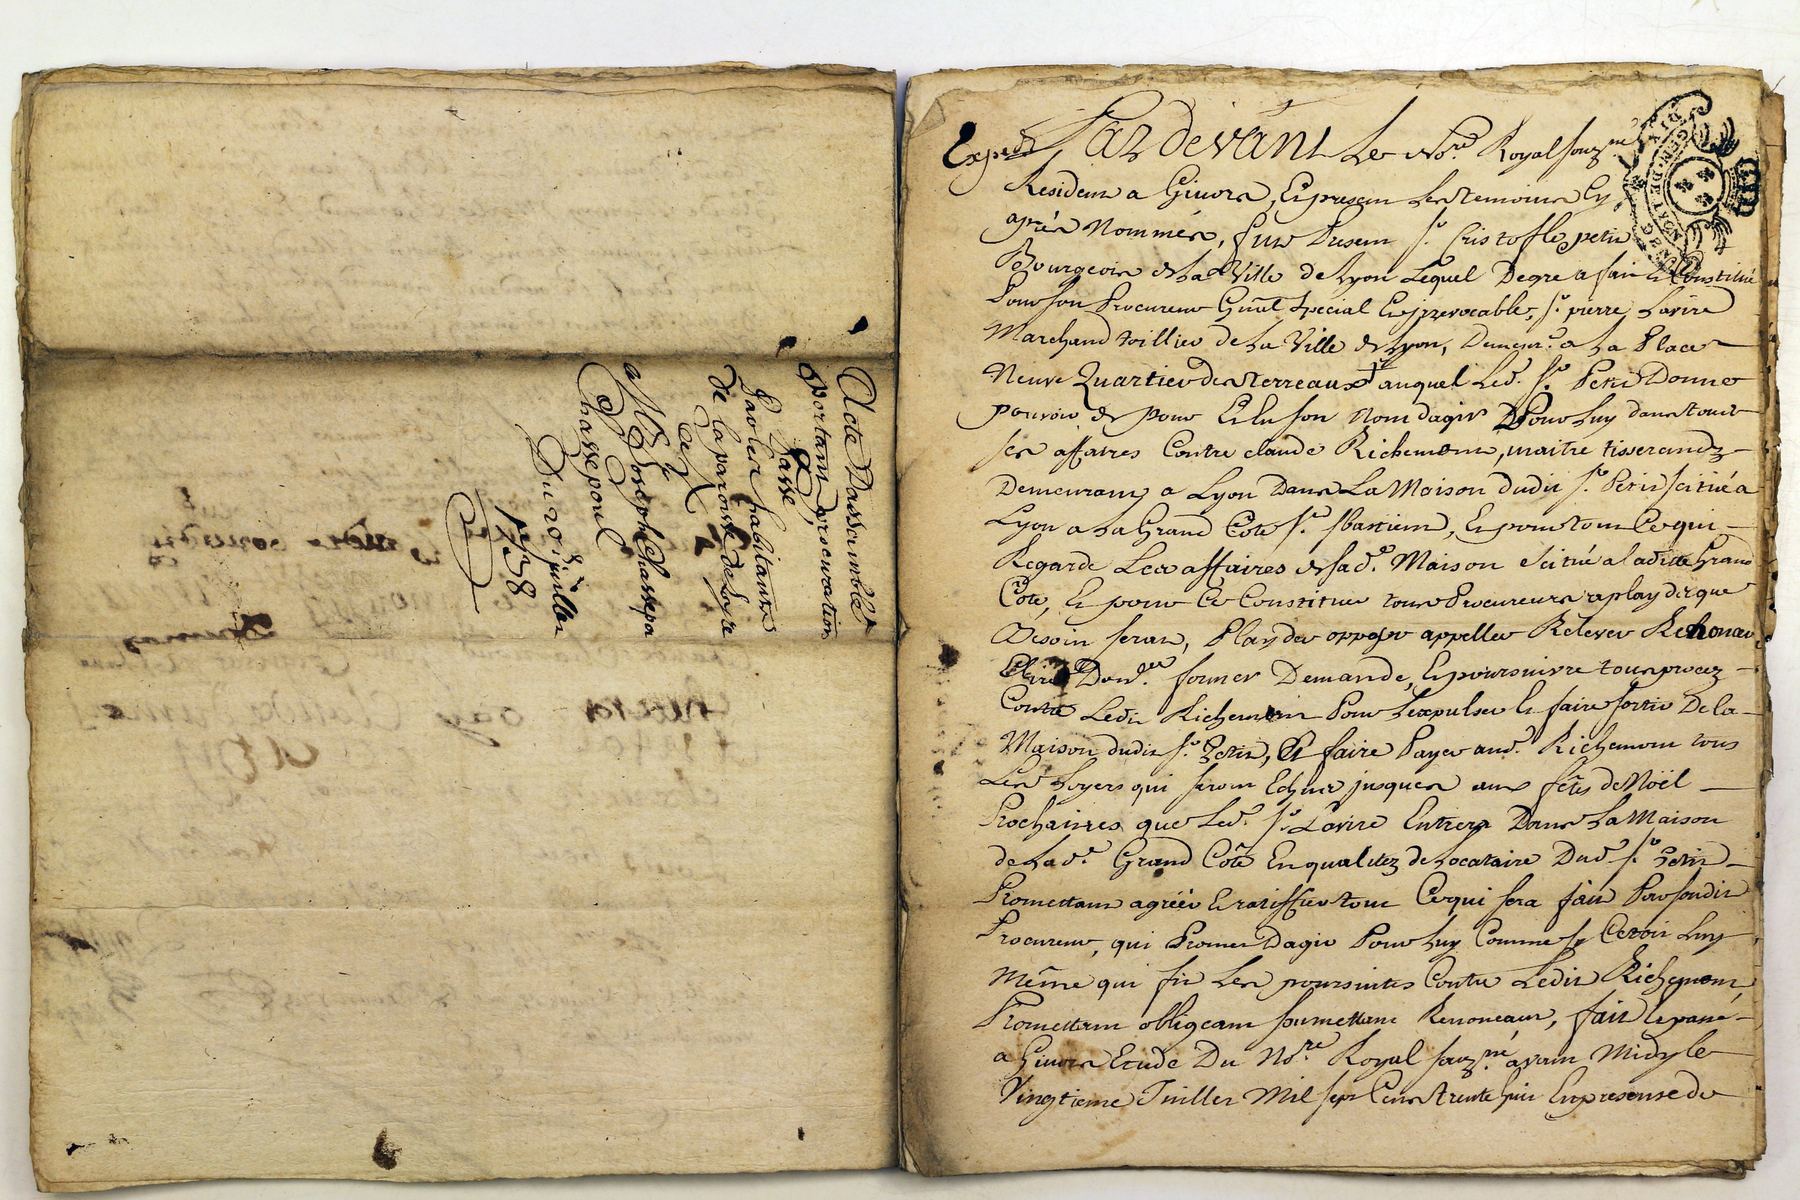 Acte Dassemblée
Portant procuration
Passé
Par les habitants
De la paroisse de Loyre
a
Me Joseph Chassepoul
Chassepoul
Du 20 juillet
1738
Expedié
Pardevant Le No.re Royal souz.né
Resident a Givors, Et presens Les temoins Cy
après Nommés, fut Present Sr. Cristofle petit
Bourgeois de La Ville de Lyon Lequel De gre a fait et Constitué
Pour son Procureur Gnal Special Et jrrevocable, Sr. pierre Lavire
Marchand toillier de La Ville de Lyon, Demeur.t a La Place
Neuve Quartier des terreaux auquel Led. Sr. Petit Donne
pouvoir de pour Et En son nom dagir Pour Luy dans tout
ses affaires Contre claude Richemont, maitre tisserand
Demeurant a Lyon Dans La Maison dudit Sr. Petit scituée a
Lyon a La Grand Côte St. sbastien, Et pour tout Ce qui
Regarde Les affaires de sad.e Maison scituée a ladite Grand
Côte, Et pour Ce Constituer tous Procureurs a playder que
Besoin seran, Playder opposer appeller Relever Renoncer
Elire Dom.lle former Demande, Et poursuivre tous procez
Contre Ledit Richemont Pour Lexpulser Et faire sortir De la
Maison dudit Sr. Petit, Et faire Payer aud. Richemont tous
Les Loyers qui seront Echus jusques aux fêtes de Noël
Prochaines que Led. Sr. Lavire Entrera Dans La Maison
de Lad.e Grand Côte En qualitez de Locataire Dud. Sr. Petit
Promettant agréer Et ratiffier tout Ce qui sera fait Par sondit
Procureur, qui Promet Dagir Pour Luy Comme sy Cetoit Luy
Même qui fit Les poursuites Contre Ledit Richemont,
Promettant obligeant soumettant Renonceant, fait et passé
a Givors Etude Du No.re Royal souz.né avant Midy le
Vingtieme Juillet Mil sept Cent trente huit En presense de